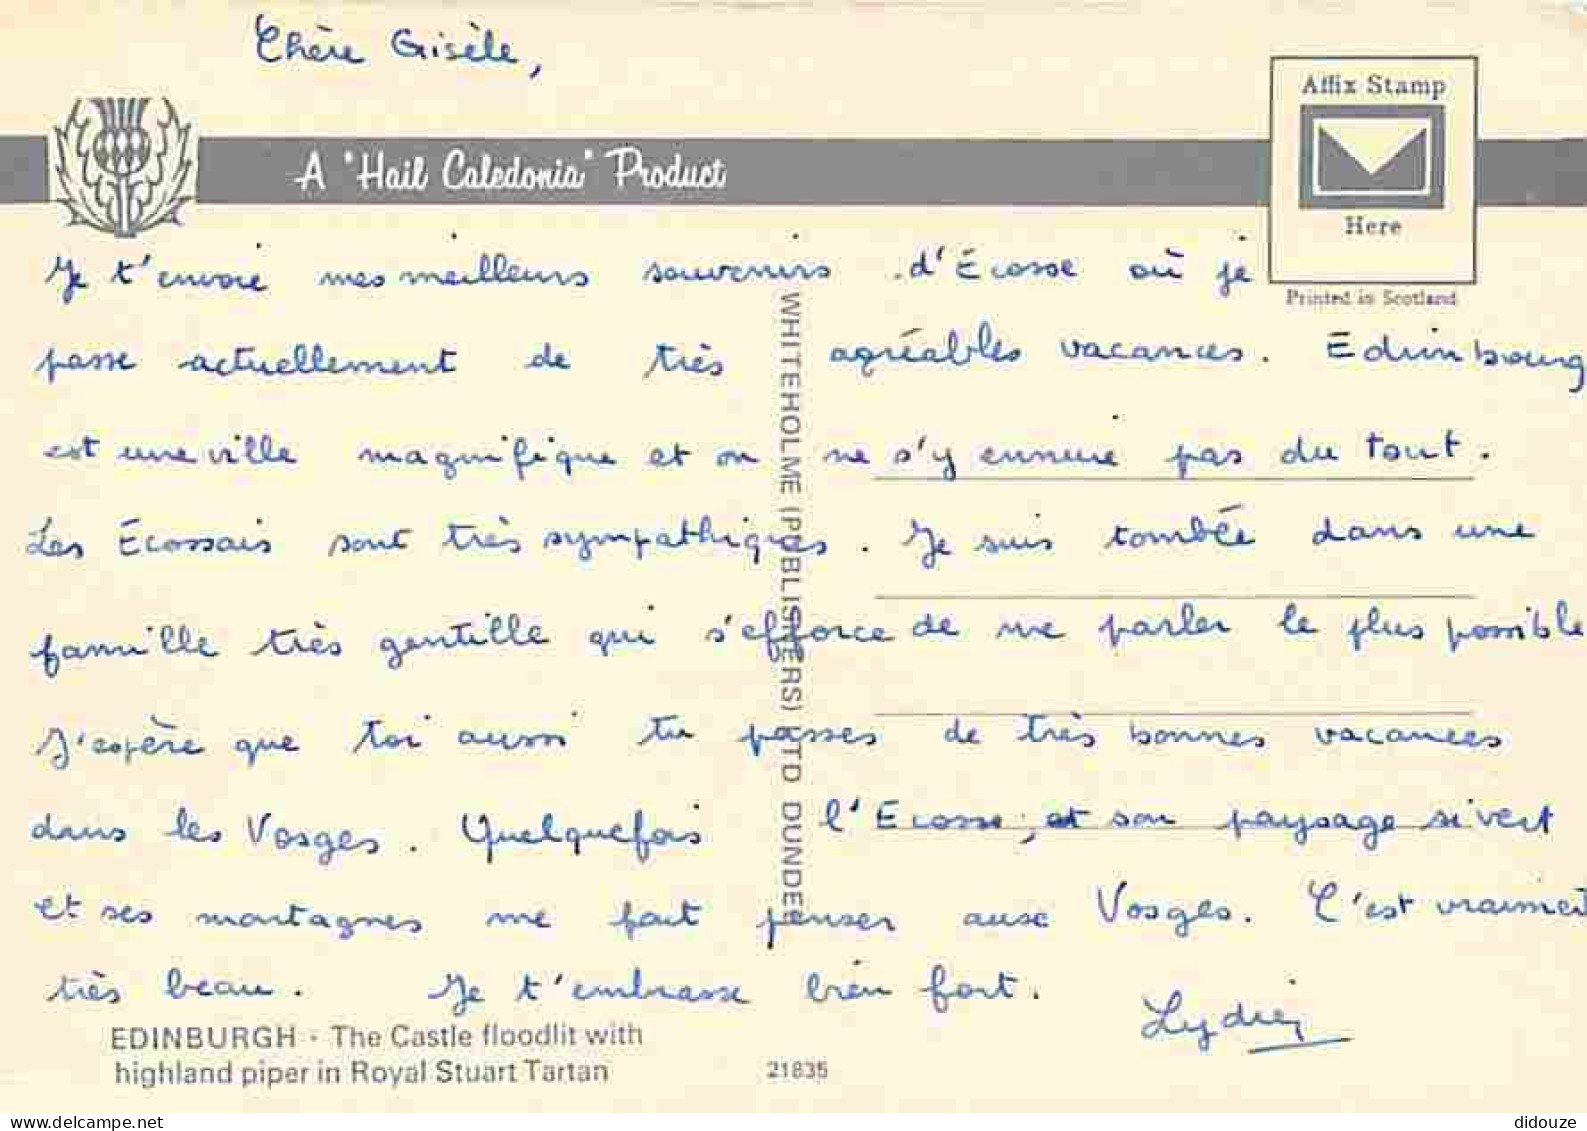 Chère Gisèle,
Affix Stamp
A "Hail Caledonia" Product
Here
Printed in Scotland
Je t'envoie mes meilleurs souvenirs d'Écosse où je
passe actuellement de très agréables vacances. Edimbourg
est une ville magnifique et on ne s'y ennuie pas du tout.
Les Écossais sont très sympathiques. Je suis tombée dans une
famille très gentille qui s'efforce de me parler le plus possible
J'espère que toi aussi tu passes de très bonnes vacances
dans les Vosges. Quelquefois l'Ecosse, et son paysage si vert
et ses montagnes me fait penser aux Vosges. C'est vraiment
très beau. Je t'embrasse bien fort.
Lydie
WHITEHOLME (PUBLISHERS) LTD DUNDEE
EDINBURGH - The Castle floodlit with
highland piper in Royal Stuart Tartan
21835
delcampe.net
didouze